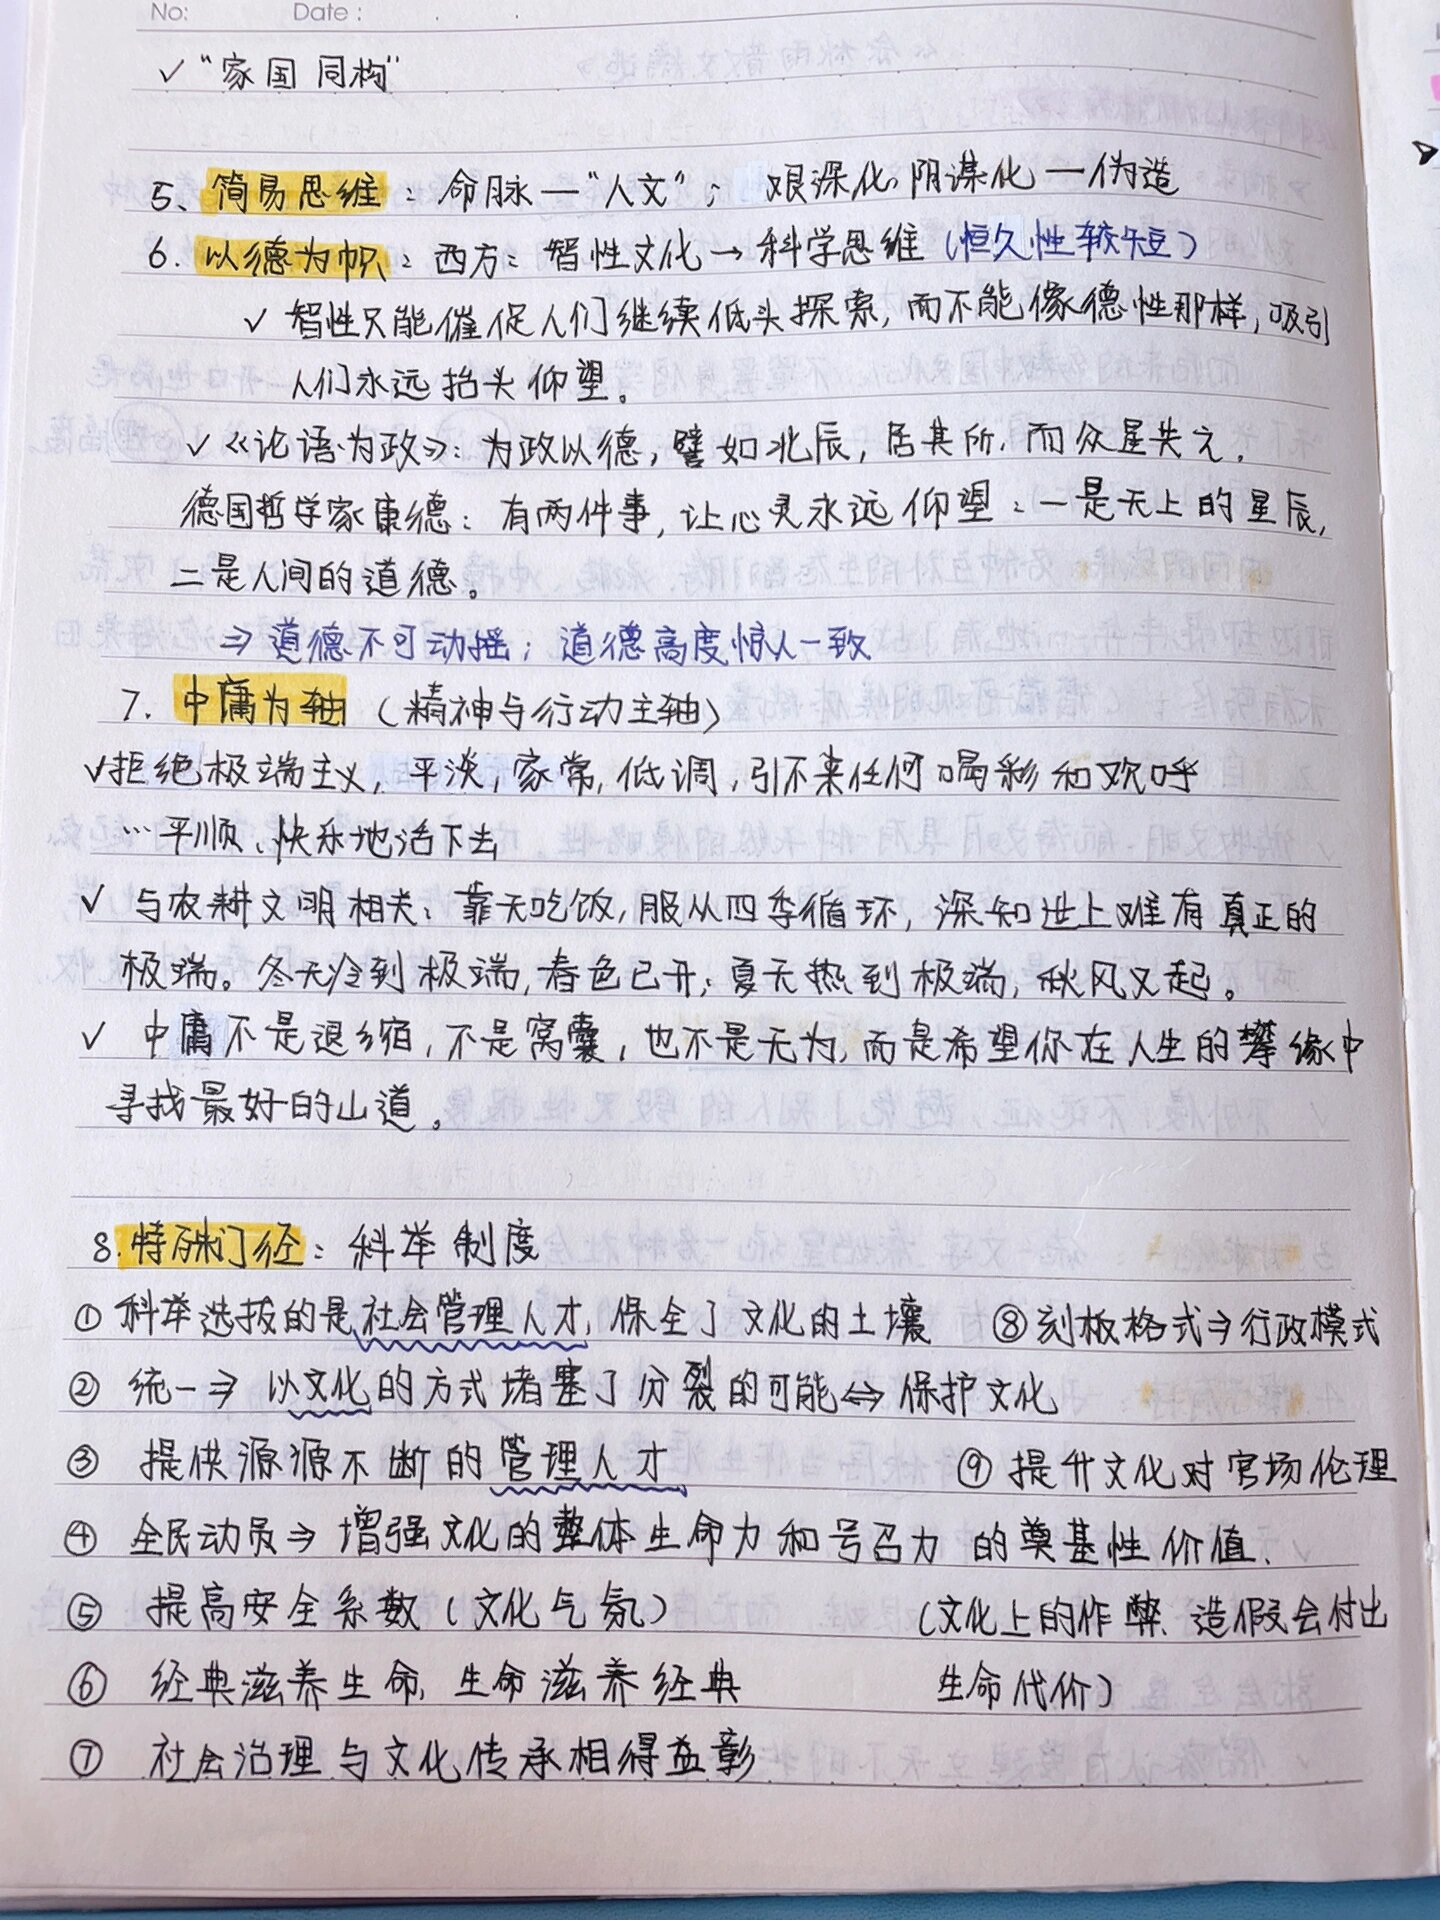 No: Date:
✓ “家国同构”
5、简易思维：命脉—“人文”； 艰深化、阴谋化—伪造
6. 以德为帜：西方：智性文化→科学思维（恒久性较短）
✓ 智性只能催促人们继续低头探索，而不能像德性那样，吸引
人们永远抬头仰望。
✓《论语·为政》：为政以德，譬如北辰，居其所，而众星共之.
德国哲学家康德：有两件事，让心灵永远仰望：一是天上的星辰，
二是人间的道德。
⇒ 道德不可动摇；道德高度惊人一致
7. 中庸为轴（精神与行动主轴）
✓拒绝极端主义，平淡，家常，低调，引不来任何喝彩和欢呼
…平顺、快乐地活下去
✓ 与农耕文明相关：靠天吃饭，服从四季循环，深知世上难有真正的
极端。冬天冷到极端，春色已开；夏天热到极端，秋风又起。
✓ 中庸不是退缩，不是窝囊，也不是无为，而是希望你在人生的攀缘中
寻找最好的山道。
8.特殊门径：科举制度
① 科举选拔的是社会管理人才，保全了文化的土壤 ⑧刻板格式⇒行政模式
② 统一⇒以文化的方式堵塞了分裂的可能⇔保护文化
③ 提供源源不断的管理人才 ⑨提升文化对官场伦理
④ 全民动员⇒增强文化的整体生命力和号召力 的奠基性价值.
⑤ 提高安全系数（文化气氛） （文化上的作弊、造假会付出
⑥ 经典滋养生命，生命滋养经典 生命代价）
⑦ 社会治理与文化传承相得益彰